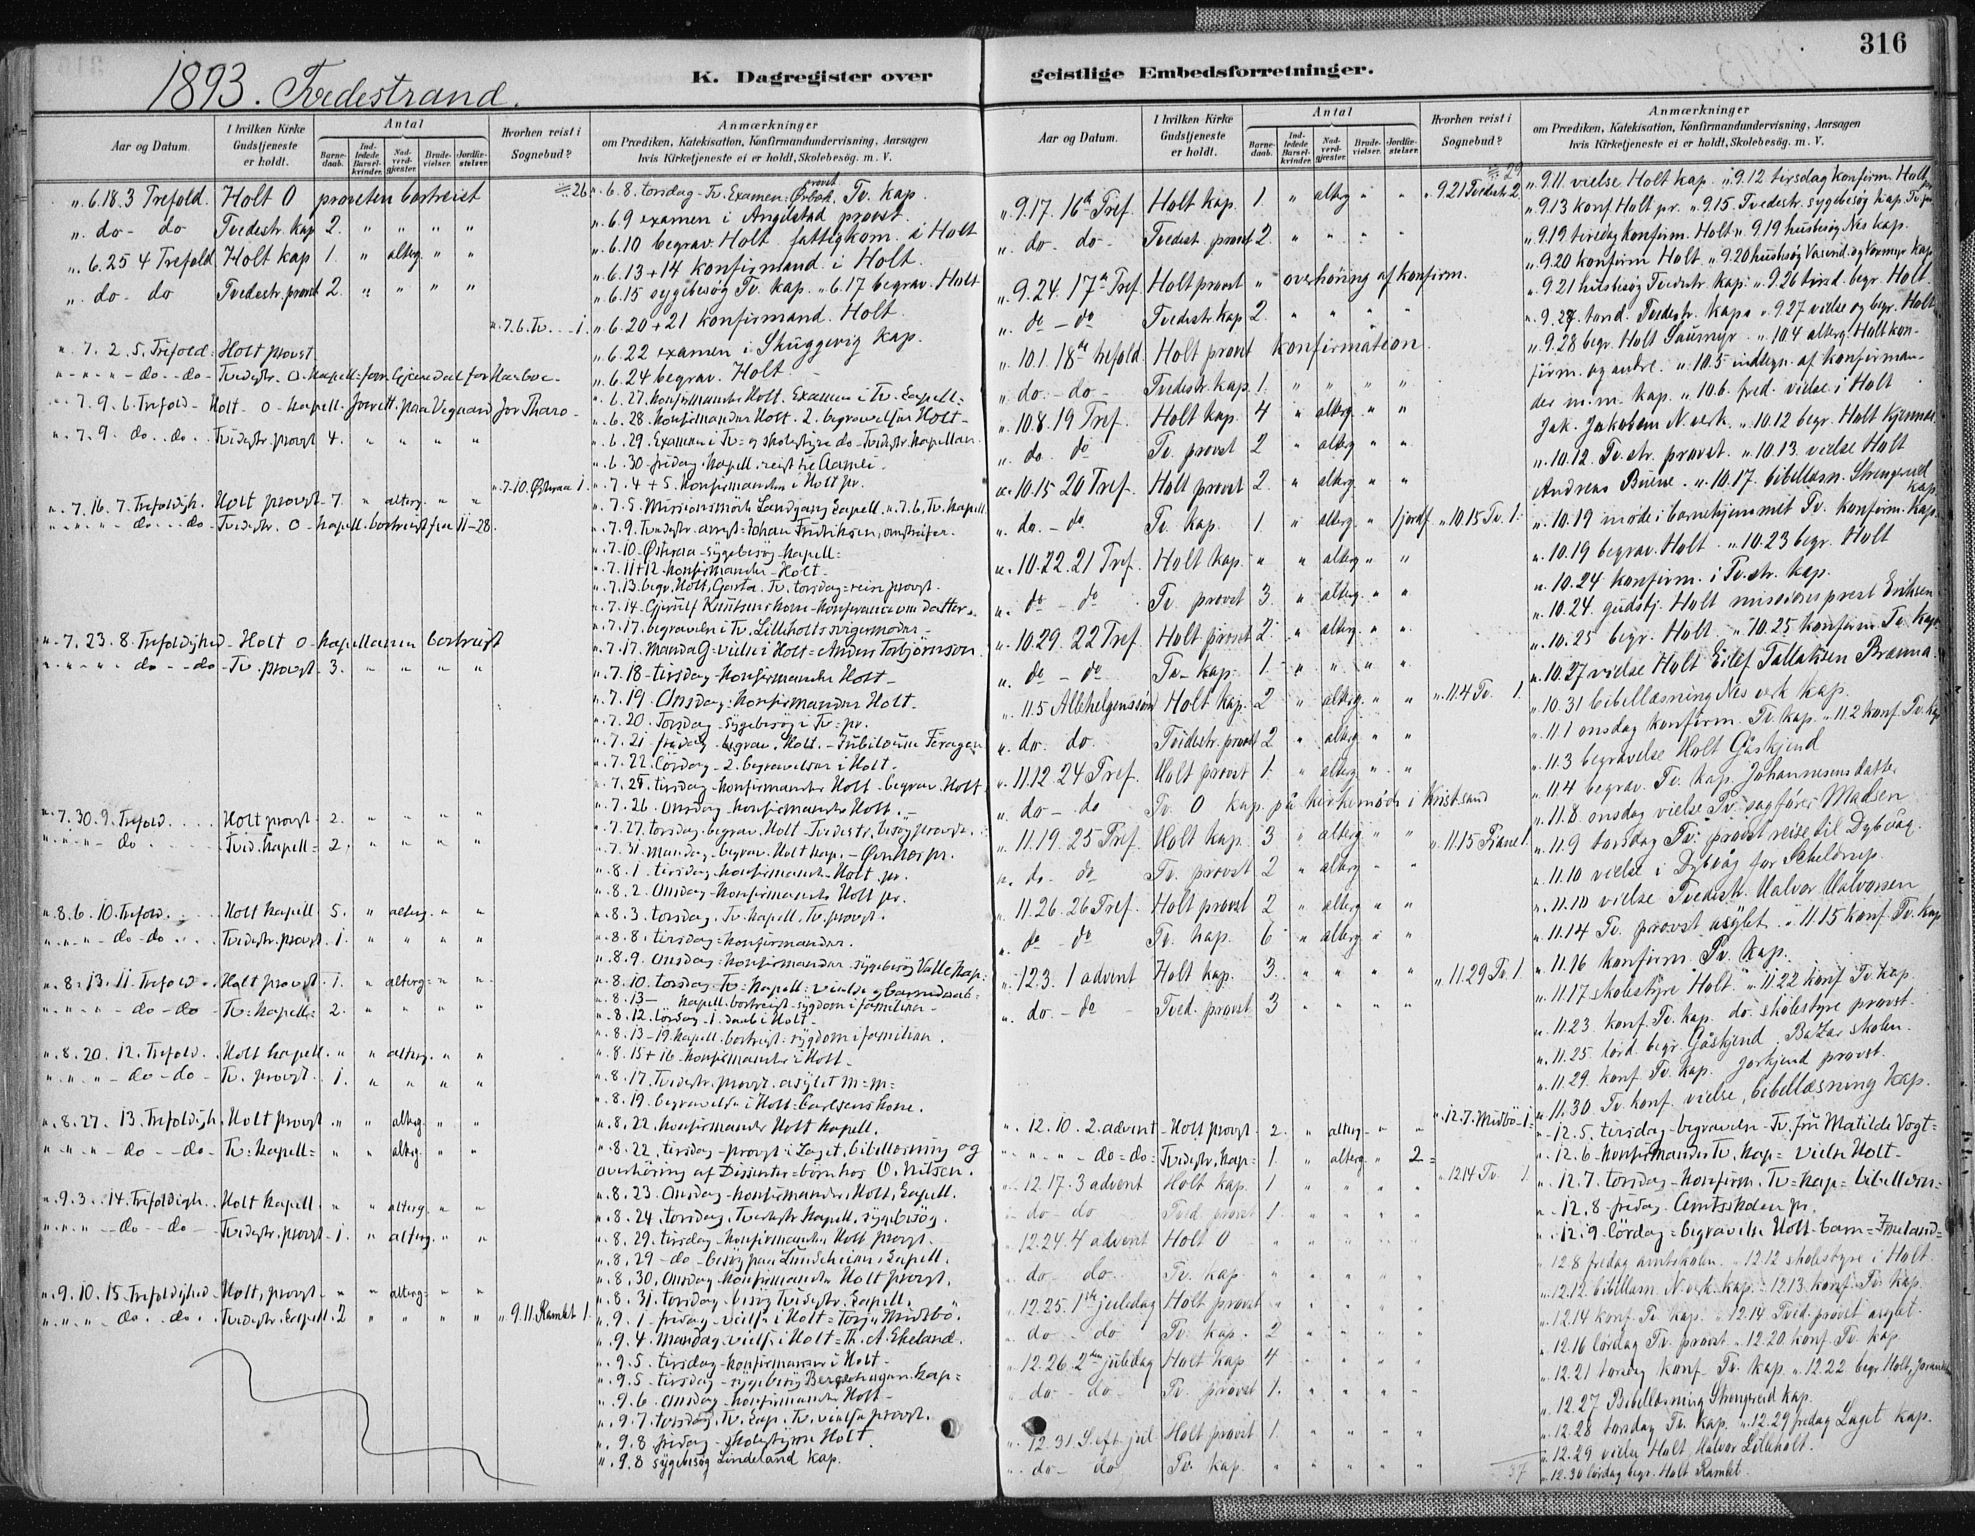 316
1893. Tvedestrand.
K. Dagregister over geistlige Embedsforretninger.
Aar og Datum.
I hvilken Kirke Gudstjeneste er holdt.
Antal
Barnedaab.
Indledede Barselkvinder.
Nadverdgjester.
Brudevielser.
Jordfæstelser.
Hvorhen reist i Sognebud?
Anmærkninger
om Prædiken, Katekisation, Konfirmandundervisning, Aarsagen
hvis Kirketjeneste ei er holdt, Skolebesøg. m. V.
„ 6.18. 3 Trefold. Holt O provsten bortreist
„ do - do Tvedestr. kap 2. „ „ „ „
„ 6.25 4 Trefold Holt kap 1. „ alterg. „ „
„ do - do Tvedestr. provst 2. „ „ „ „
„ 7.6. Tv. 1.
„ 7. 2. 5. Trefold: Holt provst
„ - do - do - Tvedestr. O.
„ 7. 9. 6. Trefold - Holt - O - kapell.
„ 7. 9. do. do. Tvedestr. provst 4. „ „ „ „
„ 7.10. Østeraa 1.
„ 7. 16. 7. Trefoldigh. Holt provst - 7. „ alterg. „ „
„ do - do - Tvedestr. O kapell. bortreist fra 11-28.
„ 7. 23. 8. Trefoldighed - Holt O kapellanen bortreist
„ do - do - Tv. provst - 3. „ „ „ „
„ 7. 30. 9. Trefold. Holt provst - 2. „ „ „ „
„ do - Tved. kapell = 2. „ „ „ „
„ 8. 6. 10. Trefold. Holt kapell 5. „ alterg. „ „
„ do - do. Tvedestr. provst. 1. „ „ „ „
„ 8. 13. 11. Trefold. Holt provst 1. „ alterg. „ „
„ do - do - Tv = kapell = 2. „ „ „ „
„ 8. 20. 12. Trefold. Holt kapell. „ „ alterg. „ „
„ do - do - Tv. provst. 1. „ „ „ „
„ 8. 27. 13. Trefoldigh. Holt provst „ „ alterg. „ „
„ do - do - Tv = kapell = „ „ alterg. „ „
„ 9. 3. 14. Trefoldigh. Holt kapell „ „ alterg. „ „
„ do - do - Tvedestr. provst 1. „ alterg. „ „
„ 9. 10. 15. Trefoldighed - Holt, provst „ „ alterg. „ „
„ do. do. Tvedestr. Capell. 2 „ „ „ „ „ 9.11. Ramlet 1.
26
„ 6. 8. torsdag - Tv. Examen. provst Tv. kap.
„ 6.9 examen i Angelstad provst.
„ 6.10 begrav. Holt fattigkom. i Holt
„ 6.13 + 14 konfirmand. i Holt.
„ 6.15 sygebesøg Tv. kap. „ 6.17 begrav. Holt
„ 6.20 + 21 konfirmand. Holt.
„ 6.22 examen i Skuggevig kap.
„ 6.24 begrav. Holt
„ 6.27. konfirmander Holt. Examen i Tv. Capell =
„ 6.28. konfirmander Holt. 2. begravelser Holt -
„ 6.29. Examen i Tv = og skolestyre do - Tvedestr. kapellan.
„ 6.30 - fredag kapell. reist til Aamli.
„ 7. 4 + 5. konfirmander i Holt pr.
„ 7. 5. Missionsmöde Landgang Capell. „ 7.6. Tv. kapell.
„ 7. 9. Tvedestr. arrest = Johan Fredriksen, omstreifer.
„ 7.10. Østeraa - sygebesøg - kapell =
„ 7.11 + 12. konfirmander - Holt -
„ 7.13. begr. Holt, Tv. torsdag = reise provst.
„ 7.14.
„ 7.17. begravelse i Tv. Lilleholts svigermoder -
„ 7.17. Mandag = vielse i Holt = Anders Torbjörnson
„ 7.18 - tirsdag - konfirmander Holt -
„ 7.19. Onsdag = konfirmander Holt.
„ 7.20. Torsdag - sygebesög i Tv = pr.
„ 7.21. fredag - begrav. Holt. - Jubilæum
„ 7.22. Lördag - 2. begravelser i Holt.
„ 7.25. tirsdag - konfirmander Holt - begrav. Holt
„ 7.26. Onsdag - konfirmander Holt. -
„ 7.27. torsdag - begrav. Holt - Tvedestr. besög
„ 7.31. Mandag - begrav. Holt kap. - pr.
„ 8. 1. tirsdag - konfirmander Holt. pr.
„ 8. 2. Onsdag - konfirmander Holt pr.
„ 8. 3. torsdag. Tv. kapell, Tv. provst.
„ 8. 8. tirsdag = konfirmander.
„ 8. 9. Onsdag = konfirmander sygebesög Valle kap =
„ 8.10. torsdag Tv = kapell = vielse og barnedaab =
„ 8.13 - kapell. bortreist = sygdom i familien -
„ 8.12. Lörsdag - 1. daab i Holt -
„ 8.13 - 19. kapell. bortreist = sygdom i familien.
„ 8.15 + 16. konfirmander i Holt -
„ 8.17. Tvedestr. provst. asylet m = m =
„ 8.19. begravelse i Holt = Carlsens kone.
„ 8.22. konfirmander Holt kapell.
„ 8.22. tirsdag - provst i Laget, bibellæsning og
overhöring af Dissenter = börn hos O. Nilsen.
„ 8.23. Onsdag - konfirmander, Holt, Capell.
„ 8.24. torsdag, Tvedestr. kapell, sygebesög.
„ 8.29. tirsdag - konfirmander Holt provst.
„ 8.29 - do - besög paa Capell.
„ 8.30. Onsdag - konfirmander Holt provst.
„ 8.31. torsdag - besög Tvedestr. Capell.
„ 9. 1. fredag - vielse i Holt = Midtbö.
„ 9. 4. Mandag - vielse i Holt = Th. A. Ekeland.
„ 9. 5. tirsdag - konfirmander i Holt -
„ 9. 5 - tirsdag - sygebesög Bergshagen. Kap =
„ 9. 6. Onsdag - konfirmander Holt -
„ 9. 7. torsdag. Tv. Cap. Tv. vielse provst.
„ 9. 8 fredag - skolestyre Holt.
„ 9. 8 sygebesøg Lindeland kap.
Aar og Datum.
I hvilken Kirke Gudstjeneste er holdt.
Antal
Barnedaab.
Indledede Barselkvinder.
Nadverdgjester.
Brudevielser.
Jordfæstelser.
Hvorhen reist i Sognebud?
Anmærkninger
om Prædiken, Katekisation, Konfirmandundervisning, Aarsagen
hvis Kirketjeneste ei er holdt, Skolebesøg. m. V.
„ 9.17. 16de Tref. Holt kap. 1. „ alterg „ „ „ 9.21 Tvedestr. 2
„ do. do. Tvedest. provst 2. „ „ „ „
„ 9.24. 17de Tref. Holt provst „ overhöring af konfirm.
„ do - do Tvedestr. kap 2. „ „ „ „
„ 10.1 18de trefold. Holt provst konfirmation.
„ do. - do - Tvedestr. kap. 1. „ „ „ „
„ 10.8. 19 Tref. Holt kap. 4 „ alterg. „ „
„ do. do Tv. provst 2 „ alterg. „ „
„ 10.15 20 Tref. Holt provst 2. „ alterg „ „
„ do. - do. Tv. kap. 1. „ alterg. „ 1 jordf. „ 10.15 Tv. 1.
„ 10.22. 21 Tref. Holt kap. „ „ alterg. „ „
„ do - do Tv. provst 3. „ alterg. „ „
„ 10.29. 22 Tref. Holt provst 2. „ alterg. „ „
„ do - do Tv. kap. 1. „ „ „ „
„ 11.5 Allehelgenssön Holt kap. 2 „ alterg. „ „ „ 11.4 Tv. 1.
„ do. do. Tvedestr. provst 2 „ alterg. „ „
„ 11.12. 24 Tref. Holt provst 1. „ alterg. „ „
„ do - do Tv. O kap. på kirkemøde i Krist.sand
„ 11.19. 25 Tref. Holt kap. 3 „ alterg. „ „ „ 11.15 1.
„ do - do Tv. provst 2 „ alterg „ „
„ 11.26. 26 Tref. Holt provst 2 „ alterg „ „
„ do - do Tv. kap. 6 „ alterg „ „
„ 12.3. 1 advent Holt kap. 3. „ „ „ „ „ 11.29 Tv. 1.
„ do. - do - Tved. provst 3 „ „ „ „
„ 12.7. Midbö - 1 =
„ 12. 10. 2. advent - Holt provst - 2. „ alterg. „ „
„ do = do = Tvedestr. kap = 1. „ alterg „ 2 =
„ 12.14 Tv. 1.
„ 12. 17. 3 advent Holt kap. 1 „ „ „ „
„ do - do Tved. provst 1. „ „ „ „
„ 12.24. 4 advent Holt O „ „ „ „
„ do. do. Tv. kap. „ „ „ „ „
„ 12.25. 1ste juledag Holt provst „ „ „ „ „
„ do - do Tv. kap. 2 „ „ „ „
„ 12.26. 2den juledag Holt kap. 4 „ „ „ „
„ do - do - Tv. provst 1. „ „ „ „
„ 12.31 S. eft. jul Holt provst 1. „ „ „ „
„ do - do Tv. kap. „ „ „ „ „
37
29
„ 9.11. vielse Holt kap. „ 9.12 tirsdag konfirm. Holt pr.
„ 9.13 konf. Holt pr. „ 9.15. Tvedestr. sygebesøg kap. Tv. pr.
„ 9.19 tirsdag konfirm. Holt „ 9.19 husbesøg Nes kap.
„ 9.20 konfirm Holt. „ 9.20 husbesøg
„ 9.21 husbesøg Tvedestr. kap. „ 9.26 tirsd. begr. Holt.
„ 9.27. Tvedestr. kap. „ 9.27 vielse og begr. Holt
„ 9.28 begr. Holt Saurmyr. „ 10.4 alterg. Holt kon-
firm. og andre. „ 10.5 indtegn. af konfirman-
der m.m. kap. „ 10.6. fred. vielse i Holt
Jak. Jakobsen N.verk. „ 10.12 begr. Holt
„ 10.12. Tv.str. provst. „ 10.13. vielse Holt
Andreas „ 10.17. bibellæsn. Strengereid kap.
„ 10.19 møde i barnehjemmet Tv. konfirm. kap.
„ 10.19 begrav. Holt „ 10.23 begr. Holt
„ 10.24 konfirm. i Tv.str. kap.
„ 10.24. gudstj. Holt missionsprest Eriksen
„ 10.25 begr. Holt. „ 10.25 konfirm. Tv. kap.
„ 10.27 vielse Holt Eilef Tallaksen
„ 10.31 bibellæsning Nes verk kap.
„ 11.1 onsdag konfirm. Tv. kap. „ 11.2 konf. Tv. kap
„ 11.3 begravelse Holt Gåskjend
„ 11.4 begrav. Tv. kap. Johannesens datter
„ 11.8 onsdag vielse Tv. sagfører Madsen
„ 11.9 torsdag Tv. provst reise til Dybvåg.
„ 11.10 vielse i Dybvåg for Scheldrup.
„ 11.10 vielse Tvedestr. Halvor Halvorsen
„ 11.14 Tv. provst asylet. „ 11.15 konf. Tv. kap
„ 11.16 konfirm. Tv. kap.
„ 11.17 skolestyre Holt. „ 11.22 konf. Tv. kap.
„ 11.23. konf. Tv. kap. do. skolestyre provst.
„ 11.25. lørd. begr. Gåskjend, Bazar skolen.
„ 11.29. konf. Tv. kap. provst.
„ 11.30 Tv. konf. vielse, bibellæsning kap.
„ 12.5. tirsdag - begravelse - Tv. fru Matilde Vogt =
„ 12.6 - konfirmander Tv. kap = vielse Holt -
„ 12.7. torsdag - konfirm. Tv = kap = bibellæsn =
„ 12.8 - fredag. Amtsskolen pr.
„ 12.9 lördag = begravelse Holt - barn =
12.8 fredag amtskolen. „ 12.12 skolestyre i Holt.
„ 12.12 bibellæsn. N.verk kap. „ 12.13 konf. Tv. kap
„ 12.14 konf. Tv kap. „ 12.14 Tved. provst asylet.
„ 12.16 lördag Tv. provst „ 12.20 konf. Tv. kap
„ 12.21 torsdag konf. Tv. kap. „ 12.22 begr. Holt,
„ 12.27 Bibellæsning Strengereid kap.
„ 12.28 torsdag Tv. kap. „ 12.29 fredag Laget kap.
„ 12.29 vielse Holt Halvor Lilleholt.
„ 12.30 lørdag begr. Holt Ramlet.